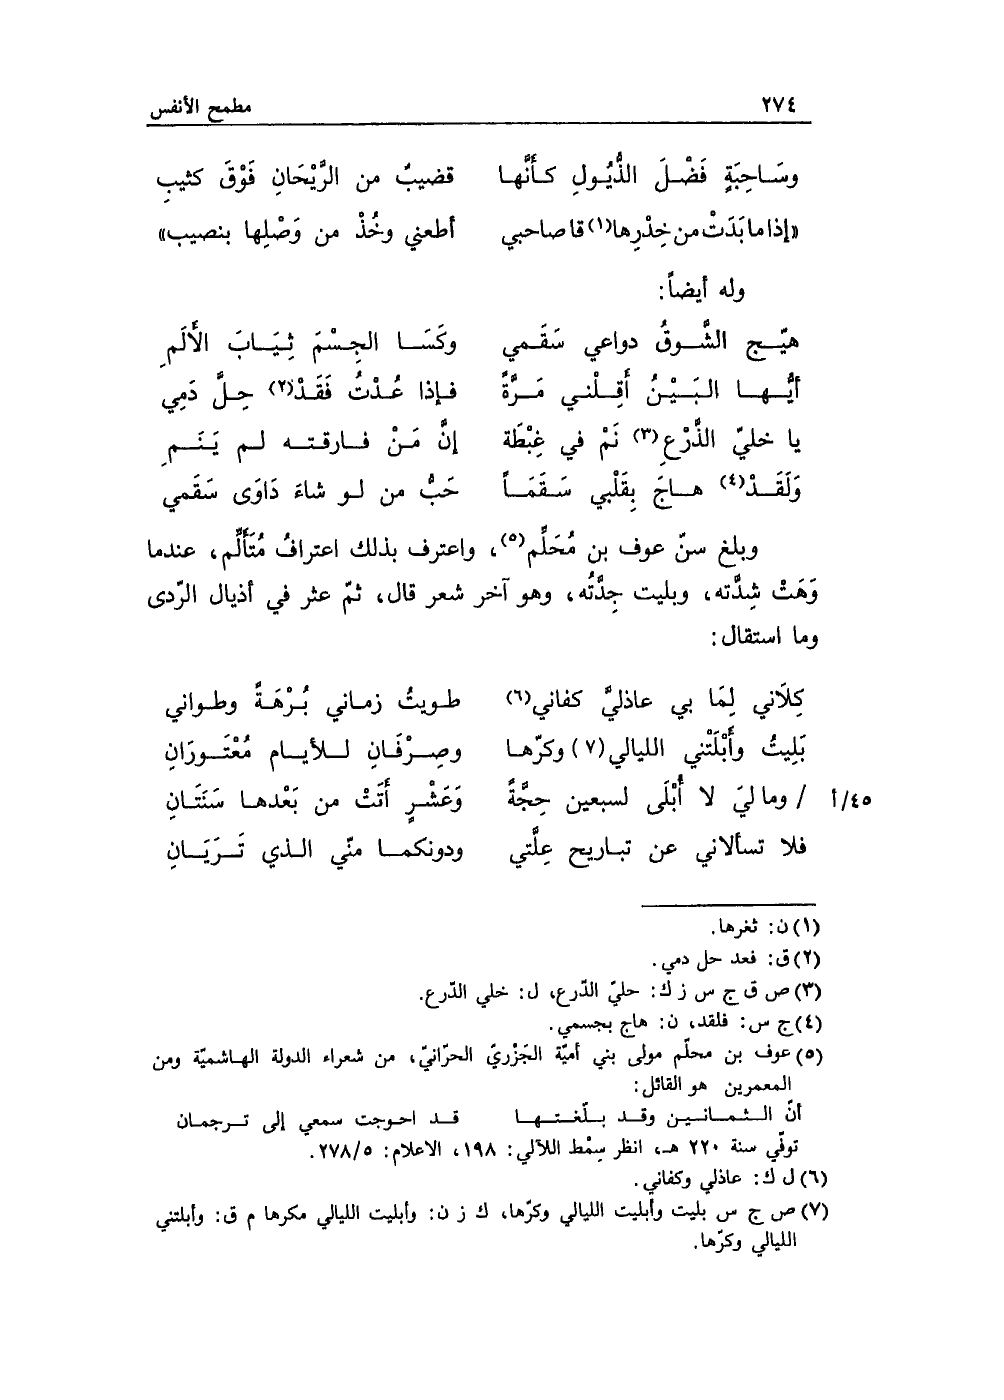 ٢٧٤ مطمح الأنفس
وسَاحِبَةٍ فَضْلَ الذُّيُولِ كأَنَّها قضيبٌ من الرَّيْحَانِ فَوْقَ كثيبِ
«إذا ما بَدَتْ من خِدْرِها(١) قا صاحبي أطعني وخُذْ من وَصْلِها بنصيب»
وله أيضاً:
هيّج الشَّوقُ دواعي سَقَمي وكَسَا الجِسْمَ ثِيَابَ الأَلَمِ
أيُّها البَيْنُ أَقِلْني مَرَّةً فإذا عُدْتُ فَقَدْ(٢) حِلَّ دَمِي
يا خليّ الذَّرْعِ(٣) نَمْ في غِبْطَة إنَّ مَنْ فارقته لم يَنَمِ
وَلَقَدْ(٤) هاجَ بِقَلْبي سَقَمَاً حَبُّ من لو شاءَ دَاوَى سَقَمي
وبلغ سنّ عوف بن مُحَلِّم(٥)، واعترف بذلك اعترافُ مُتَأَلِّم، عندما
وَهَتْ شِدَّته، وبليت جِدَّتُه، وهو آخر شعر قال، ثمّ عثر في أذيال الرّدى
وما استقال:
كِلَاني لِمَا بي عاذليَّ كفاني(٦) طويتُ زماني بُرْهَةً وطواني
بَلِيتُ وأَبْلَتْني الليالي(٧) وكرّها وصِرْفَانِ للأيام مُعْتَورَانِ
٤٥/أ / وما ليَ لا أُبْلَى لسبعين حِجَّةً وَعَشْرٍ أَتَتْ من بَعْدها سَنَتَانِ
فلا تسألاني عن تباريح عِلَّتي ودونكما منّي الذي تَرَيَانِ
(١) ن: ثغرها.
(٢) ق: فعد حل دمي.
(٣) ص ق ج س ز ك: حليّ الدّرع، ل: خلي الدّرع.
(٤) ج س: فلقد، ن: هاج بجسمي.
(٥) عوف بن محلّم مولى بني أميّة الجَزْريّ الحرّانيّ، من شعراء الدولة الهاشميّة ومن
المعمرين هو القائل:
أنّ الثمانين وقد بلّغتها قد احوجت سمعي إلى ترجمان
توفّي سنة ٢٢٠ هـ، انظر سِمْط اللآلي: ١٩٨، الاعلام: ٢٧٨/٥.
(٦) ل ك: عاذلي وكفاني.
(٧) ص ج س بليت وأبليت الليالي وكرّها، ك ز ن: وأبليت الليالي مكرها م ق: وأبلتني
الليالي وكرّها.